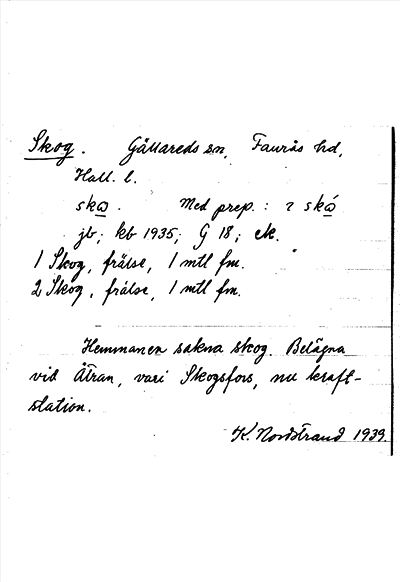 Skog. Gällareds sn, Faurås hd,
Hall. l.
skọ. Med prep.: i skọ́
jb; kb 1935; G 18; ek.
1 Skog, frälse, 1 mtl fm.
2 Skog, frälse, 1 mtl fm.
Hemmanen sakna skog. Belägna
vid Ätran, vari Skogsfors, nu kraft-
station.
K. Nordstrand 1939.